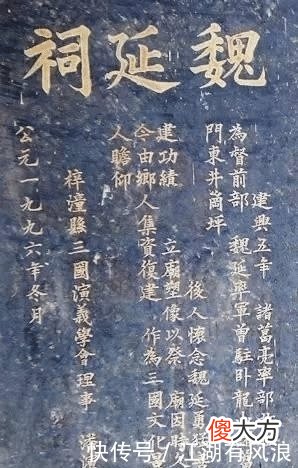 魏延祠
建興五年 諸葛亮率部
為督前部 魏延率軍曾駐卧龍
門東井崗坪
後人懷念魏延勇
建功績 立廟塑像以祭 廟因時
今由鄉人集資復建 作為三國文化
人瞻仰
梓潼縣三國演義學會理事
公元一九九六年冬月
傻大方
快传号/江湖有风浪